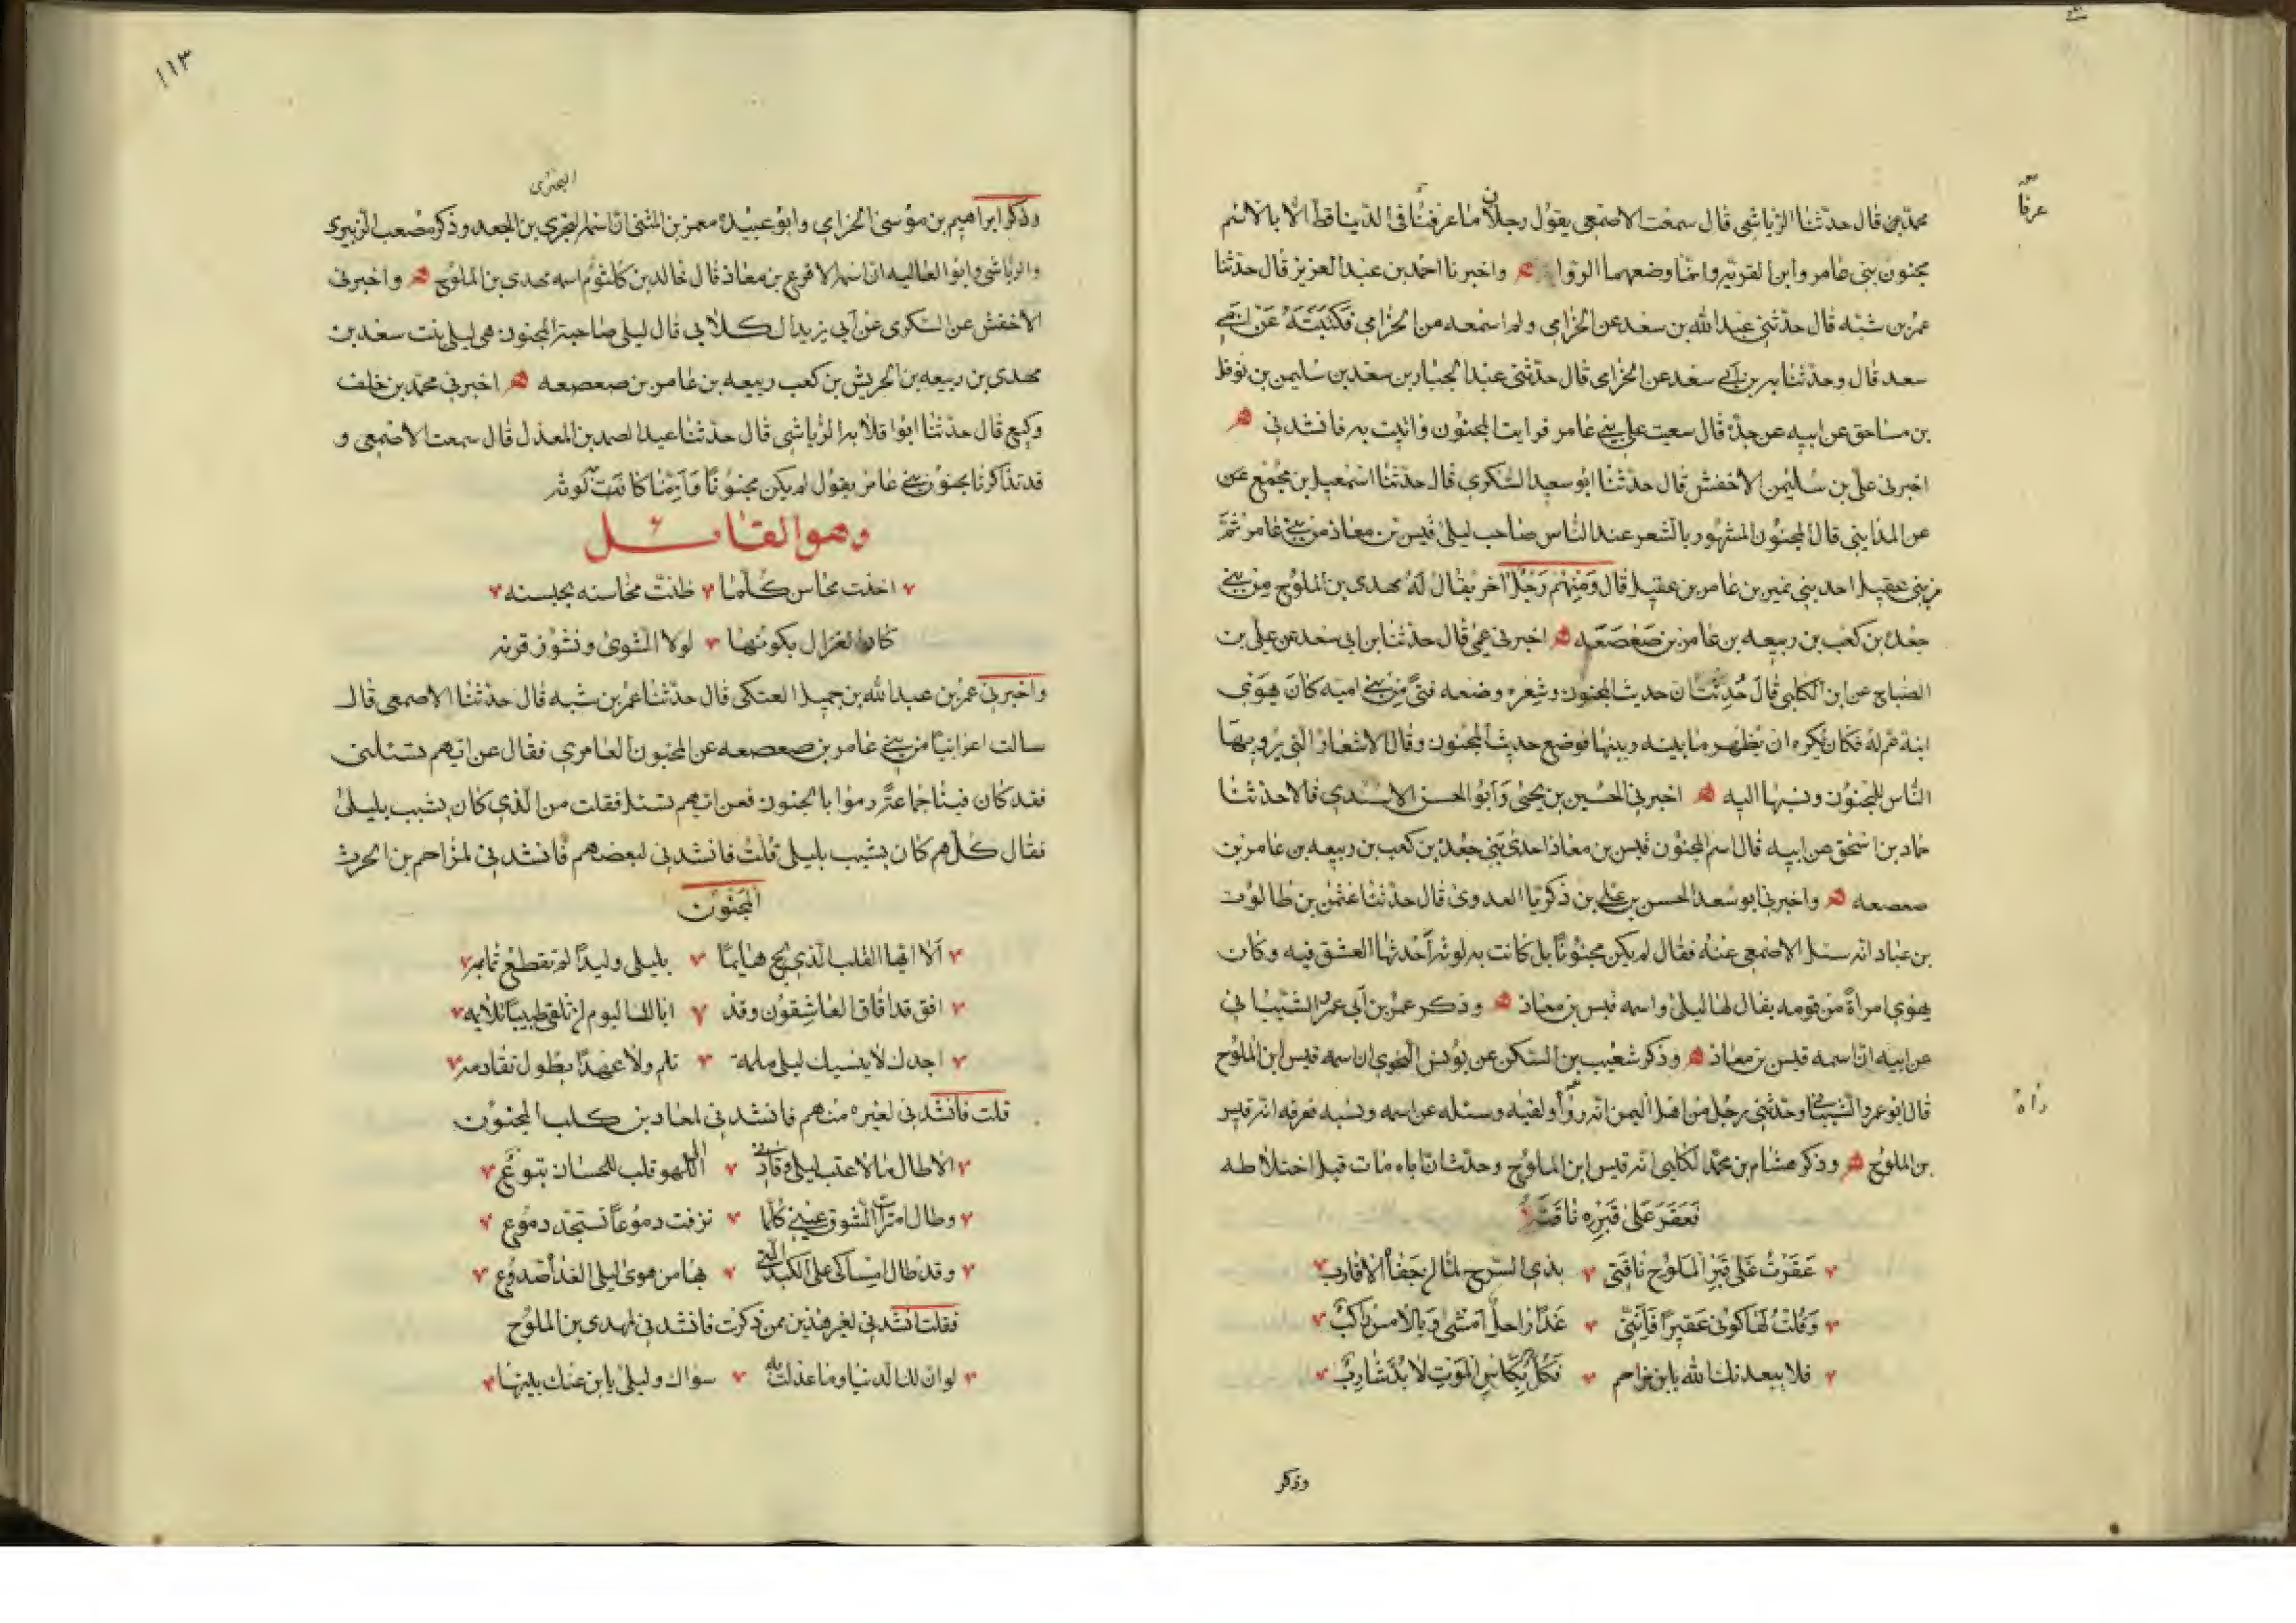 محمد بن قال حدثنا الرياشى قال سمعت الاصمعى يقول رجلان ما عرفنا فى الدنيا قط الا بالاسم
عرفا
مجنون بنى عامر وابن القريه وانما وضعهما الرواه واخبرنا احمد بن عبد العزيز قال حدثنا
عمر بن شبه قال حدثنى عبد الله بن سعد عن الحزامى ولم اسمعه من الحزامى فكتبته عن ابى
سعد قال وحدثنا به بن ابى سعد عن الحزامى قال حدثنى عبد الجبار بن سعد بن سليمن بن نوفل
بن مساحق عن ابيه عن جده قال سعيت على بنى عامر فرايت المجنون واتيت به فانشدنى
اخبرنى على بن سليمن الاخفش قال حدثنا ابو سعيد السكرى قال حدثنا اسمعيل بن مجمع عن
عن المداينى قال المجنون المشهور بالشعر عند الناس صاحب ليلى قيس بن معاذ من بنى عامر ثم
من بنى عقيل احد بنى نمير بن عامر بن عقيل قال ومنهم رجل اخر يقال له مهدى بن الملوح من بنى
جعده بن كعب بن ربيعه بن عامر بن صعصعه اخبرنى عمى قال حدثنا بن ابى سعد عن على بن
الصباح عن ابن الكلبى قال حدثت ان حديث المجنون وشعره وضعه فتى من بنى اميه كان يهوى
ابنة عم له فكان يكره ان يظهر ما بينه وبينها فوضع حديث المجنون وقال الاشعار التى يرويها
الناس للمجنون ونسبها اليه اخبرنى الحسين بن يحيى وابو الحسن الاسدى قالا حدثنا
حماد بن اسحق عن ابيه قال اسم المجنون قيس بن معاذ احد بنى جعده بن كعب بن ربيعه بن عامر بن
صعصعه واخبرنى ابو سعد الحسن بن على بن ذكريا العدوى قال حدثنا عثمن بن طالوت
بن عباد انه سئل الاصمعى عنه فقال لم يكن مجنونا بل كانت به لوثه احدثها العشق فيه وكان
يهوى امراة من قومه يقال لها ليلى واسمه قيس بن معاذ وذكر عمر بن ابى عمر الشيبانى
عن ابيه ان اسمه قيس بن معاذ وذكر شعيب بن السكن عن يونس النحوى ان اسمه قيس ابن الملوح
قال ابو عمرو الشيبانى وحدثنى رجل من اهل اليمن انه رواه ولقيه وسئله عن اسمه ونسبه فعرفه انه قيس
راه
بن الملوح وذكر هشام بن محمد الكلبى انه قيس ابن الملوح وحدث ان اباه مات قبل اختلاطه
فعقر على قبره ناقته
عقرت على قبر الملوح ناقتى بذى السرح لما ان جفاه الاقارب
وقلت لها كونى عقيرا فاننى غدا راحل امشى وبالامس راكب
فلا يبعدنك الله يا بن مزاحم فكل بكاس الموت لا بد شارب
وذكر
١١٣
البحترى
وذكر ابراهيم بن موسى الحزامى وابو عبيده معمر بن المثنى ان اسمه البحترى بن الجعد وذكر مصعب الزبيرى
والرياشى وابو العاليه ان اسمه الاقرع بن معاذ قال خالد بن كلثوم اسمه مهدى بن الملوح واخبرنى
الاخفش عن السكرى عن ابى زياد الكلابى قال ليلى صاحبة المجنون هى ليلى بنت سعد بن
مهدى بن ربيعه بن الحريش بن كعب ربيعه بن عامر بن صعصعه اخبرنى محمد بن خلف
وكيع قال حدثنا ابو قلابه الرياشى قال حدثنا عبد الصمد بن المعذل قال سمعت الاصمعى و
قد تذاكرنا مجنون بنى عامر يقول لم يكن مجنونا وانما كانت به لوثه
وهو القائل
اخذت محاسن كلما ظنت محاسنه بحسنه
كاد الغزال يكونها لولا الشوى ونشوز قرنه
واخبرنى عمر بن عبد الله بن جميل العتكى قال حدثنا عمر بن شبه قال حدثنا الاصمعى قال
سالت اعرابيا من بنى عامر بن صعصعه عن المجنون العامرى فقال عن ايهم تسئلنى
فقد كان فينا جماعة رموا بالجنون فعن ايهم تسئل فقلت من الذى كان يشبب بليلى
فقال كلهم كان يشبب بليلى قلت فانشدنى لبعضهم فانشدنى لمزاحم بن الحرث
المجنون
الا ايها القلب الذى لج هايما بليلى وليدا لم تقطع تمايمه
افق قد افاق العاشقون وقد انا لك اليوم ان تلقى طبيبا تلايمه
اجدك لا ينسيك ليلى ملمة تلم ولا عهدا يطول تقادمه
قلت فانشدنى لغيره منهم فانشدنى لمعاذ بن كلب المجنون
الا طال ما لاعبت ليلى وقادنى الى اللهو قلب للحسان تبوع
وطال امتراء الشوق عينى كلما نزفت دموعا تستجد دموع
وقد طال امساكى على الكبد التى بها من هوى ليلى الغداة صدوع
فقلت انشدنى لغير هذين ممن ذكرت فانشدنى لمهدى بن الملوح
لو ان لك الدنيا وما عدلت به سواك وليلى بابن عنك بينها